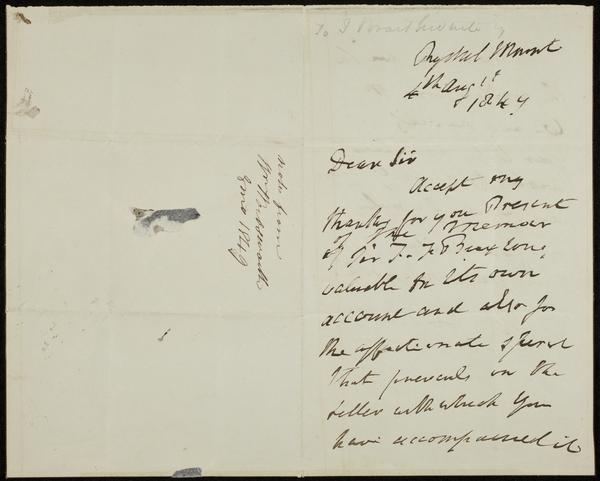 To J Braithwaite
Rydal Mount
4th Augst
1849
Dear Sir
Accept my
thanks for you Present
of the Memoir
of Sir T. F. Buxton,
valuable on its own
account and also for
the affectionate spirit
that prevails in the
letter with which you
have accompanied it
note from
Wm Wordsworth
1849